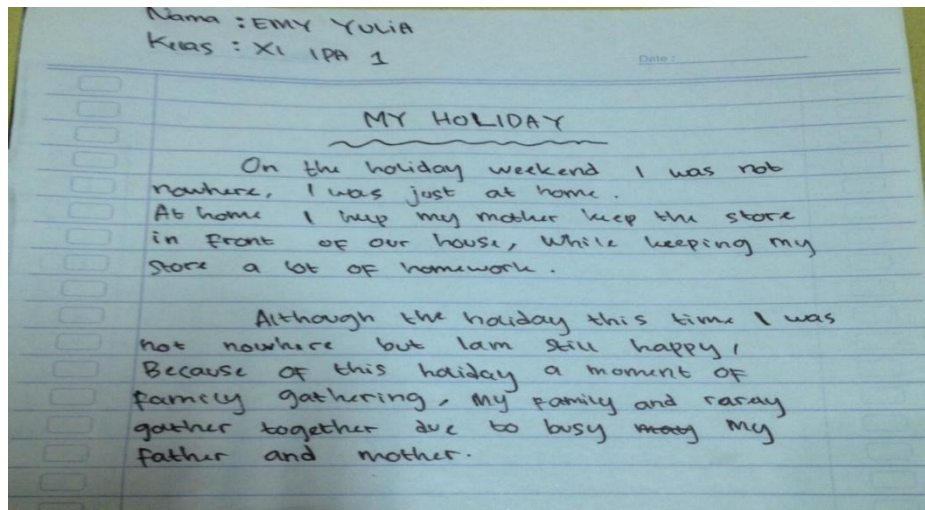 Nama : EMY YULiA
Kelas : XI IPA 1
Date :
MY HOLIDAY
On the holiday weekend I was not
nowhere, I was just at home.
At home I help my mother keep the store
in front of our house, while keeping my
store a lot of homework.
Although the holiday this time I was
not nowhere but Iam still happy,
Because of this holiday a moment of
family gathering, my family and raray
gather together due to busy my
father and mother.